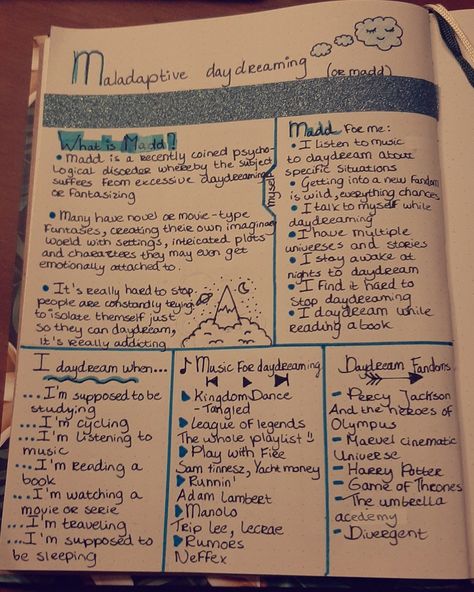 Maladaptive daydreaming (or madd)
What is Madd?
• Madd is a recently coined psycho-
logical disorder whereby the subject
suffers from excessive daydreaming
or fantasizing
• Many have novel or movie-type
fantasies, creating their own imaginary
world with settings, intricated plots
and characters they may even get
emotionally attached to.
• It's really hard to stop,
people are constantly trying
to isolate themself just
so they can daydream,
it's really addicting
myself
Madd for me:
• I listen to music
to daydream about
specific situations
• Getting into a new fandom
is wild, everything chances
• I talk to myself while
daydreaming
• I have multiple
universes and stories
• I stay awake at
nights to daydream
• I find it hard to
stop daydreaming
• I daydream while
reading a book
I daydream when...
...I'm supposed to be
studying
...I'm cycling
...I'm listening to
music
...I'm reading a
book
...I'm watching a
movie or serie
...I'm traveling
...I'm supposed to
be sleeping
Music for daydreaming
Kingdom Dance
- Tangled
League of legends
The whole playlist !!
Play with Fire
Sam tinnesz, Yacht money
Runnin'
Adam Lambert
Manolo
Trip lee, Lecrae
Rumors
Neffex
Daydream Fandoms
- Percy Jackson
And the heroes of
Olympus
- Marvel cinematic
Universe
- Harry Potter
- Game of Thrones
- The umbrella
academy
- Divergent